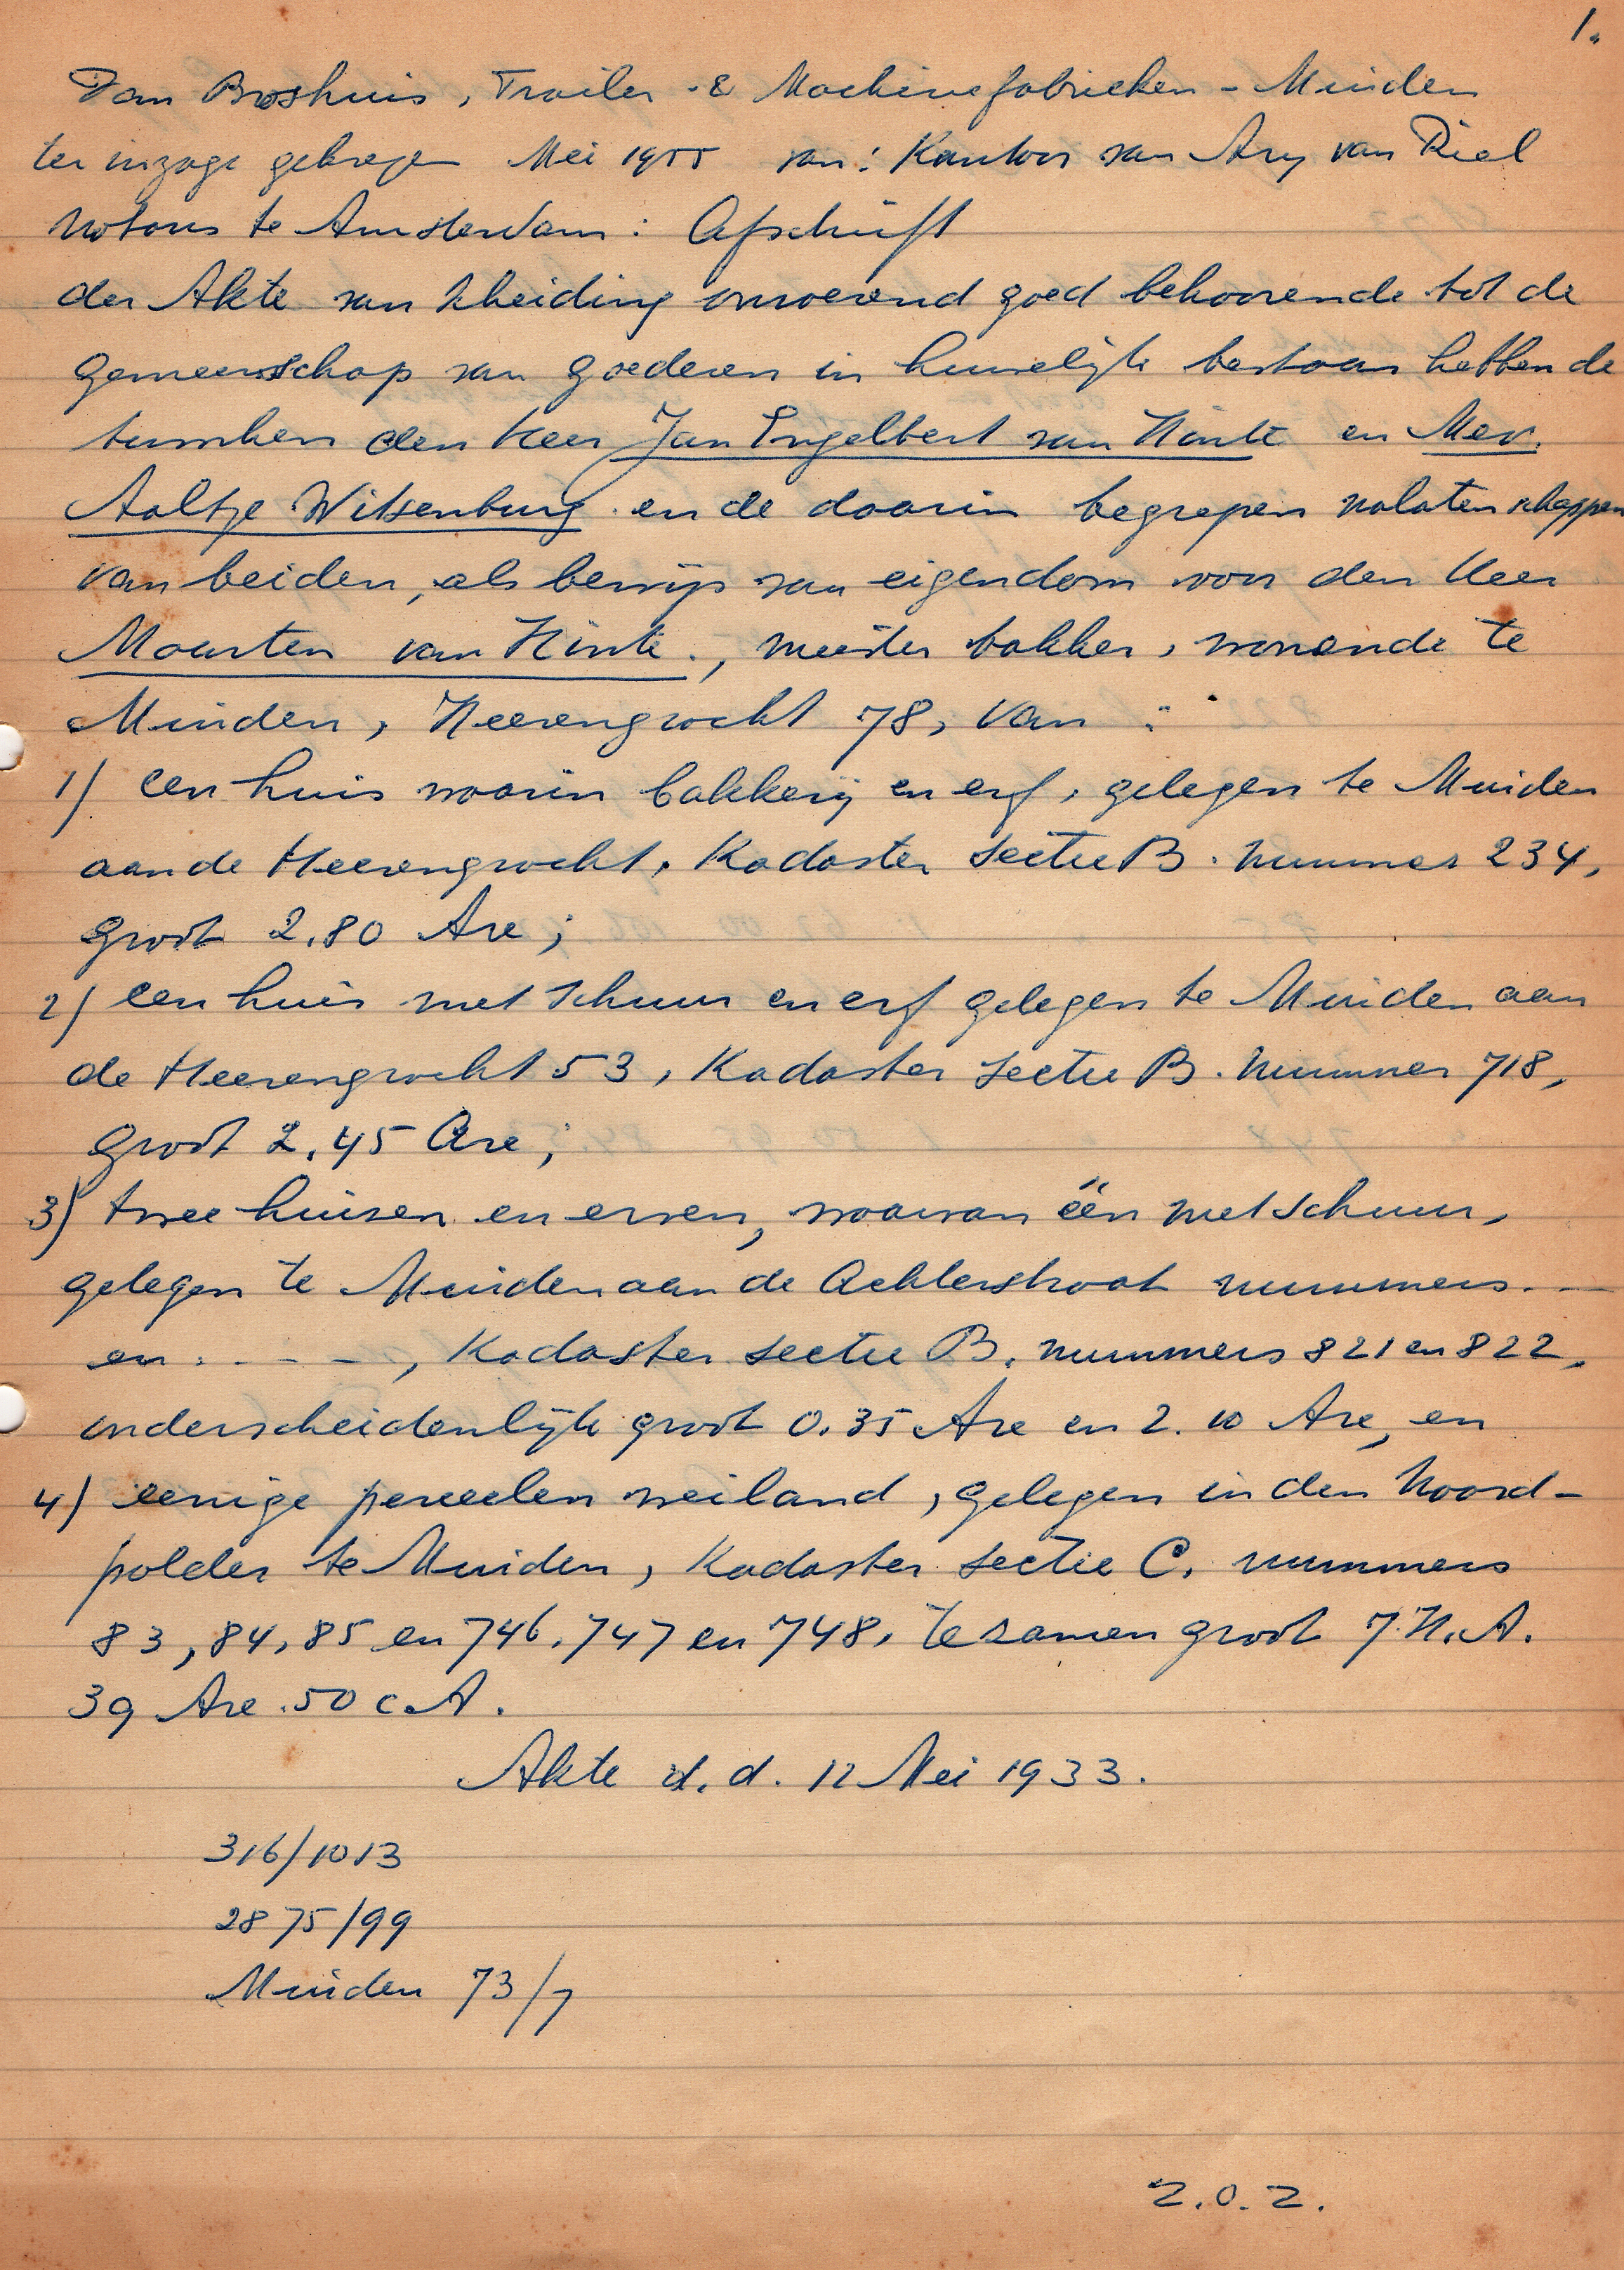 1.
Van Broshuis, Trailer- & Machinefabrieken - Muiden
ter inzage gekregen Mei 1955 van: Kantoor van Ary van Riel
Notaris te Amsterdam: Afschrift
der Akte van Scheiding onroerend goed behoorende tot de
gemeenschap van goederen in huwelijk bestaan hebbende
tusschen den Heer Jan Engelbert van Hinte en Mev.
Aaltje Witsenburg en de daarin begrepen nalatenschappen
van beiden, als bewijs van eigendom voor den Heer
Maarten van Hinte, meester bakker, wonende te
Muiden, Heerengracht 78, van :
1) een huis waarin bakkerij en erf, gelegen te Muiden
aan de Heerengracht, Kadaster Sectie B. nummer 234,
groot 2.80 Are;
2) een huis met schuur en erf gelegen te Muiden aan
de Heerengracht 53, Kadaster Sectie B. nummer 718,
groot 2.45 Are;
3) twee huizen en erven, waarvan één met schuur,
gelegen te Muiden aan de Achterstraat nummers. --
en . - - -, Kadaster sectie B. nummers 821 en 822,
onderscheidenlijk groot 0.35 Are en 2.10 Are, en
4) eenige perceelen weiland, gelegen in den Noord-
polder te Muiden, Kadaster sectie C. nummers
83, 84, 85 en 746, 747 en 748, tezamen groot 7 H.A.
39 Are. 50 c.A.
Akte d.d. 12 Mei 1933.
316/1013
2875/99
Muiden 73/7
Z.O.Z.